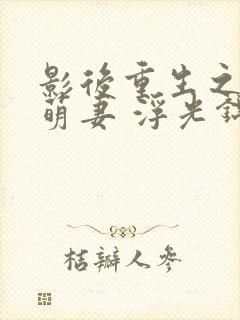 影後重生之
萌妻 浮光錦
桔瓣人參